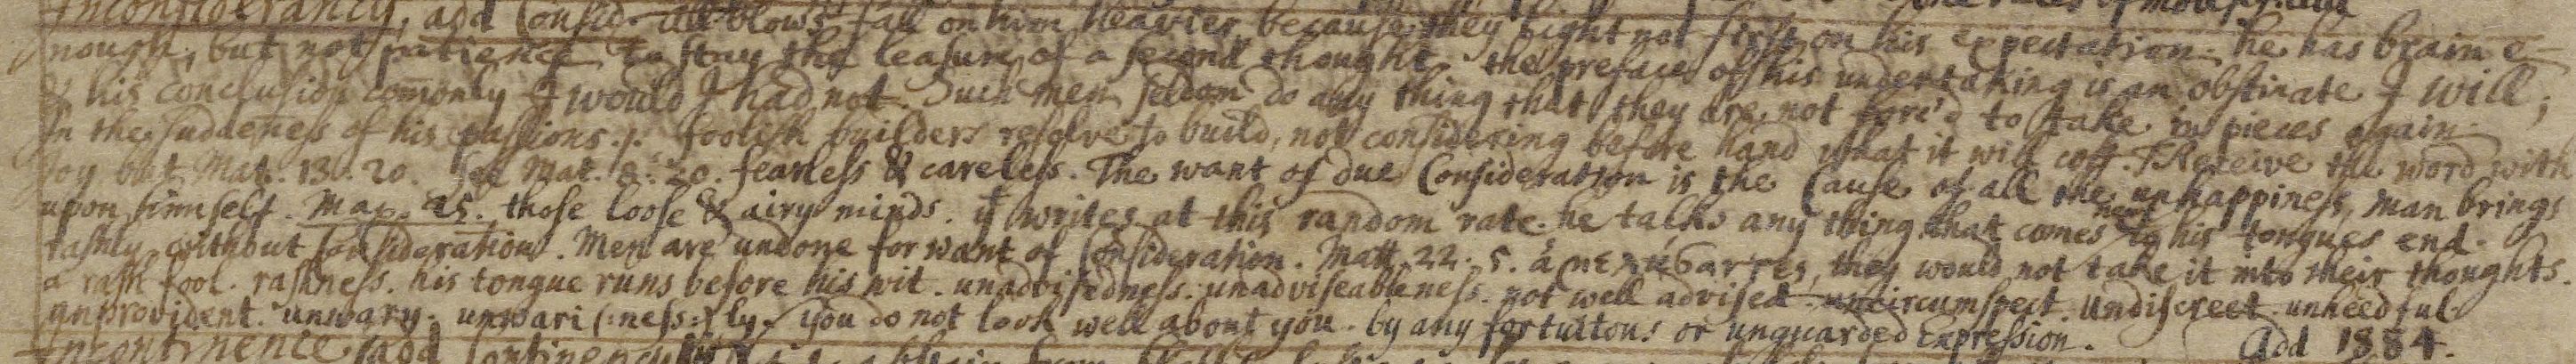 Inconsiderancy, add Consid. all blows fall on him heavier because they light not first on his expectation. he has brain e-
nough, but not patience to stay the leasure of a second thought. the preface of his undertaking is an obstinate I will;
& his conclusion comonly I would I had not. Such men seldom do any thing that they are not forc'd to take in pieces again.
In the suddeness of his passions. foolish builders resolve to build, not considering before hand what it will cost. Receive the word with
Joy but Mat. 13. 20. See Mat. 8. 20. fearless & careless. The want of due Consideration is the Cause of all the unhappiness, man brings
upon himself. Max. 25. those loose & airy minds. yt writes at this random rate. he talks any thing that comes next to his tongues end.
rashly without consideration. Men are undone for want of Consideration. Matt. 22. 5. ἀμελήσαντες, they would not take it into their thoughts.
a rash fool. rashness. his tongue runs before his wit. unadvisedness. unadviseableness. not well advised. uncircumspect. Undiscreet. unheedful.
unprovident. unwary. unwari (:ness:) ly. You do not look well about you. by any fortuitous or unguarded Expression.
Incontinence, add Continency Add 1884